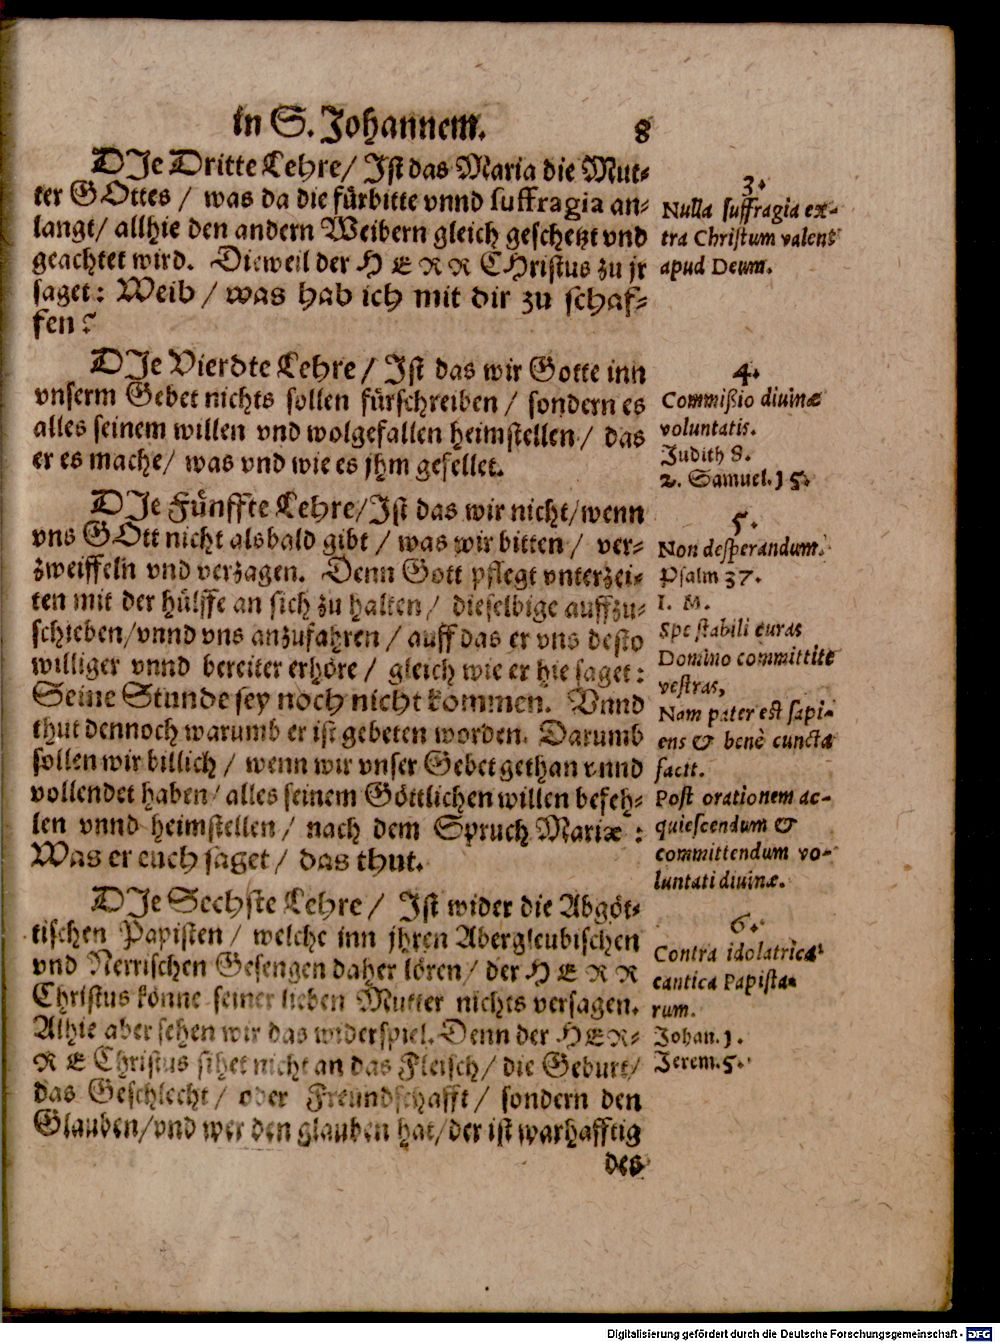 in S. Johannem. 8
DJe Dritte Lehre/ Jst das Maria die Mut-
ter GOttes / was da die fürbitte vnnd suffragia an-
langt/ allhie den andern Weibern gleich geschetzt vnd
geachtet wird. Dieweil der HERR CHristus zu jr
saget: Weib / was hab ich mit dir zu schaf-
fen?
3.
Nulla suffragia ex-
tra Christum valent
apud Deum.
DJe Vierdte Lehre / Jst das wir Gotte inn
vnserm Gebet nichts sollen fürschreiben / sondern es
alles seinem willen vnd wolgefallen heimstellen / das
er es mache/ was vnd wie es jhm gefellet.
4.
Commißio diuinæ
voluntatis.
Judith 8.
2. Samuel. 15.
DJe Fünffte Lehre/Jst das wir nicht/wenn
vns GOtt nicht alsbald gibt / was wir bitten / ver-
zweiffeln vnd verzagen. Denn Gott pflegt vnterzei-
ten mit der hülffe an sich zu halten / dieselbige auffzu-
schieben/vnnd vns anzufahren / auff das er vns desto
williger vnnd bereiter erhöre / gleich wie er hie saget:
Seine Stunde sey noch nicht kommen. Vnnd
thut dennoch warumb er ist gebeten worden. Darumb
sollen wir billich / wenn wir vnser Gebet gethan vnnd
vollendet haben/ alles seinem Göttlichen willen befeh-
len vnnd heimstellen / nach dem Spruch Mariæ :
Was er euch saget / das thut.
5.
Non desperandum.
Psalm 37.
I. M.
Spe stabili curas
Domino committite
vestras,
Nam pater est sapi-
ens & benè cuncta
facit.
Post orationem ac-
quiescendum &
committendum vo-
luntati diuinæ.
DJe Sechste Lehre / Jst wider die Abgöt-
tischen Papisten / welche inn jhren Abergleubischen
vnd Nerrischen Gesengen daher lören / der HERR
Christus könne seiner lieben Mutter nichts versagen.
Alhie aber sehen wir das widerspiel. Denn der HER-
RE Christus sihet nicht an das Fleisch/ die Geburt/
das Geschlecht / oder Freundschafft / sondern den
Glauben/vnd wer den glauben hat/der ist warhafftig
des
6.
Contra idolatrica
cantica Papista-
rum.
Johan. 1.
Jerem. 5.
Digitalisierung gefördert durch die Deutsche Forschungsgemeinschaft - DFG